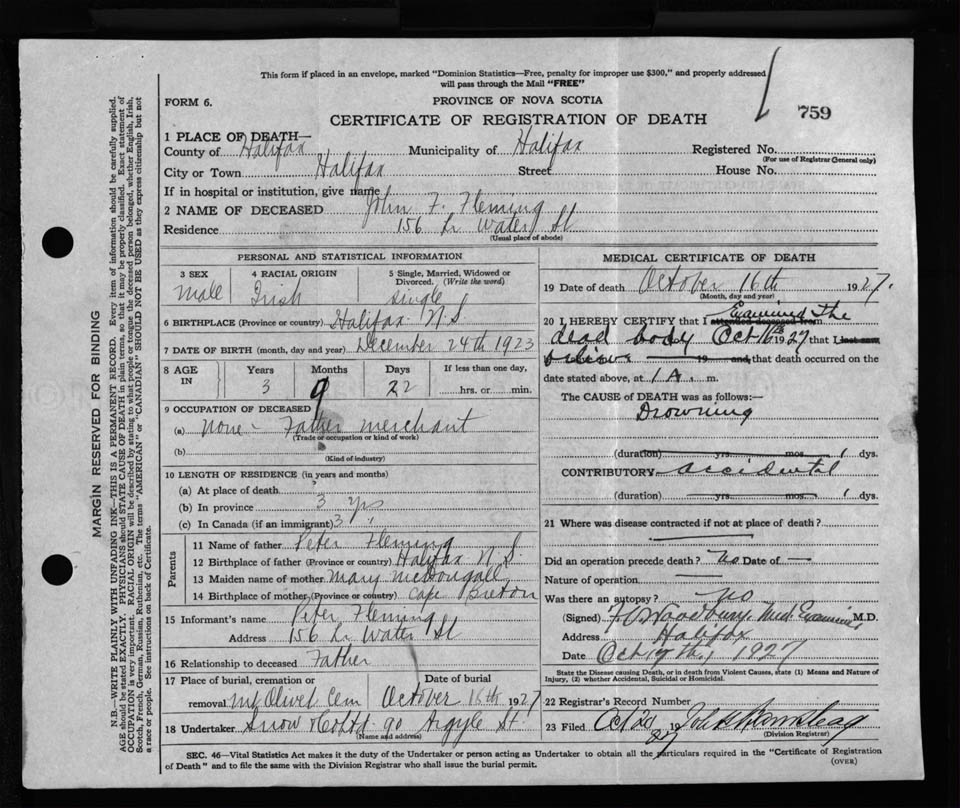 This form if placed in an envelope, marked "Dominion Statistics—Free, penalty for improper use $300," and properly addressed
will pass through the Mail "FREE"
FORM 6.
PROVINCE OF NOVA SCOTIA
759
CERTIFICATE OF REGISTRATION OF DEATH
1 PLACE OF DEATH—
County of Halifax Municipality of Halifax Registered No.
(For use of Registrar General only)
City or Town Halifax Street House No.
If in hospital or institution, give name
2 NAME OF DECEASED John F. Fleming
Residence 156 Lr Water St
(Usual place of abode)
PERSONAL AND STATISTICAL INFORMATION
3 SEX 4 RACIAL ORIGIN 5 Single, Married, Widowed or
Divorced. (Write the word)
Male Irish single
6 BIRTHPLACE (Province or country) Halifax N.S
7 DATE OF BIRTH (month, day and year) December 24th 1923
8 AGE IN Years Months Days If less than one day,
3 9 22 hrs. or min.
9 OCCUPATION OF DECEASED
(a) None - Father merchant
(Trade or occupation or kind of work)
(b)
(Kind of industry)
10 LENGTH OF RESIDENCE (in years and months)
(a) At place of death
(b) In province 3 yrs
(c) In Canada (if an immigrant) 3 "
Parents
11 Name of father Peter Fleming
12 Birthplace of father (Province or country) Halifax N.S.
13 Maiden name of mother Mary McDougall
14 Birthplace of mother (Province or country) Cape Breton
15 Informant's name Peter Fleming
Address 156 Lr Water St
16 Relationship to deceased Father
17 Place of burial, cremation or Date of burial
removal Mt Olivet Cem October 16th 1927
18 Undertaker Snow & Co Ltd 90 Argyle St.
(Name and address)
MEDICAL CERTIFICATE OF DEATH
19 Date of death October 16th 1927.
(Month, day and year)
20 I HEREBY CERTIFY that I attended deceased from Examined the
dead body Oct 16th 1927 that I last saw
19 and that death occurred on the
date stated above, at 1 A. m.
The CAUSE of DEATH was as follows:—
Drowning
(duration) yrs. mos. dys.
CONTRIBUTORY accidental
(duration) yrs. mos. dys.
21 Where was disease contracted if not at place of death?
Did an operation precede death? No Date of —
Nature of operation —
Was there an autopsy? No
(Signed) Med. Examiner, M.D.
Address Halifax
Date Oct 17th, 1927
State the Disease causing Death, or in death from Violent Causes, state (1) Means and Nature of
Injury, (2) whether Accidental, Suicidal or Homicidal.
22 Registrar's Record Number
23 Filed Oct 19 27
(Division Registrar)
SEC. 46—Vital Statistics Act makes it the duty of the Undertaker or person acting as Undertaker to obtain all the particulars required in the "Certificate of Registration
of Death" and to file the same with the Division Registrar who shall issue the burial permit.
(OVER)
MARGIN RESERVED FOR BINDING
N.B.—WRITE PLAINLY WITH UNFADING INK—THIS IS A PERMANENT RECORD. Every item of information should be carefully supplied.
AGE should be stated EXACTLY. PHYSICIANS should STATE CAUSE OF DEATH in plain terms, so that it may be properly classified. Exact statement of
OCCUPATION is very important. RACIAL ORIGIN will be described by stating to what people or tongue the deceased person belonged, whether English, Irish,
Scotch, French, German, Russian, Ruthenian, etc. The terms "AMERICAN" or "CANADIAN" SHOULD NOT BE USED as they express citizenship but not
a race or people. See instructions on back of Certificate.